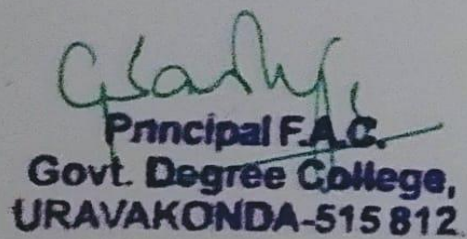 Principal F.A.C.
Govt. Degree College,
URAVAKONDA-515 812